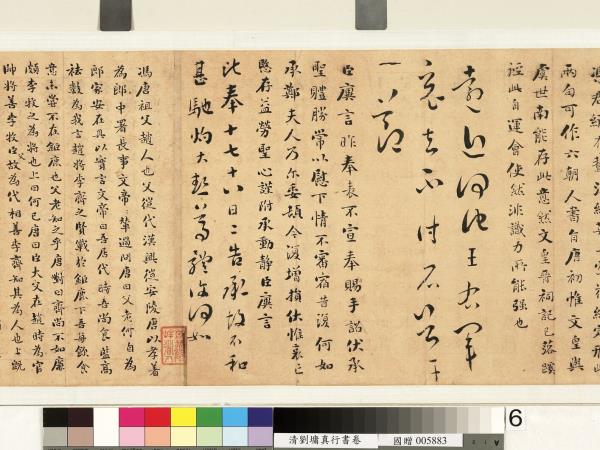 兩句可作六朝人書自唐初惟文皇與
虞世南能存此意然文皇晉祠記已落蹊
逕此自運會使然非識力所能強也
臣廙言昨奉表不宣奉賜手詔伏承
聖體勝常以慰下情不審宿昔復何如
承鄭夫人乃尔委頓今復增損伏惟哀亡
愍存益勞聖心謹附承動靜臣廙言
此奉十七十八日二告承故不和
甚馳灼大熱尊體復何如
馮唐祖父趙人也父徙代漢興徙安陵唐以孝著
為郎中署長事文帝帝輦過問唐曰父老何自為
郎家安在具以實言文帝曰吾居代時吾尚食監高
祛數為我言趙將李齊之賢戰於鉅鹿下吾每飲食
意未嘗不在鉅鹿也父老知之乎唐對曰齊尚不如廉
頗李牧之為將也上曰何已唐曰臣大父在趙時為官
師將善李牧臣父故為代相善李齊知其為人也上既
6
清劉墉真行書卷
國贈 005883